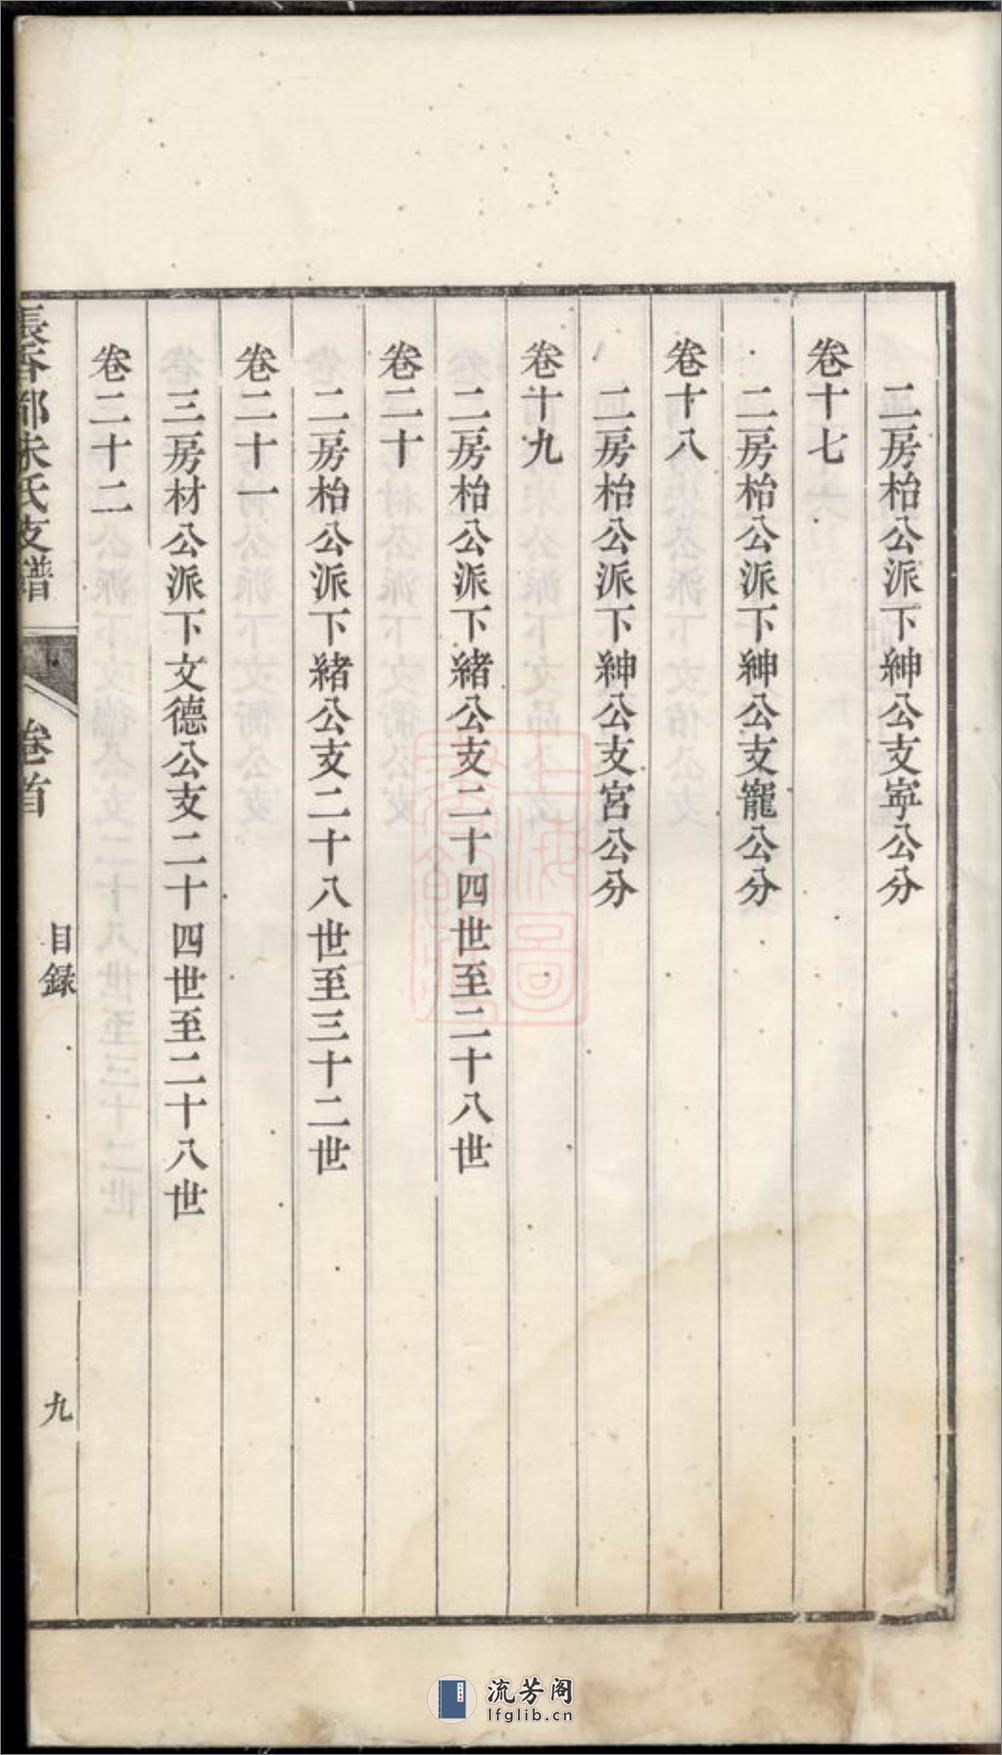 二房枱公派下紳公支寧公分
卷十七
二房枱公派下紳公支寵公分
卷十八
二房枱公派下紳公支宮公分
卷十九
二房枱公派下緒公支二十四世至二十八世
卷二十
二房枱公派下緒公支二十八世至三十二世
卷二十一
三房材公派下文德公支二十四世至二十八世
卷二十二
長香都朱氏支譜
卷首
目録
九
流芳阁
lfglib.cn